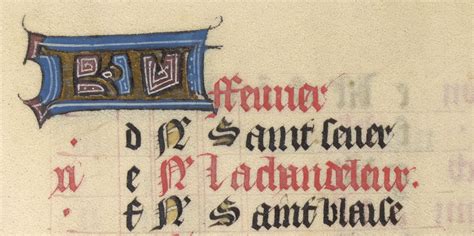 KL ffeurier
. d N Saint seuer
xi e N La chandeleur.
f N Saint blaise